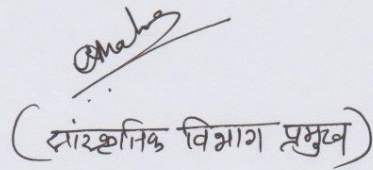 (सांस्कृतिक विभाग प्रमुख)